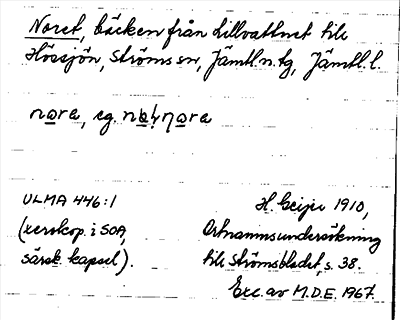 Noret, bäcken från Lillvattnet till
Hössjön, Ströms sn, Jämtl. n. tg, Jämtl. l.
nọra, eg.
ULMA 446:1
(xerokop. i SOA,
särsk. kapsel).
H. Geijer 1910,
Ortnammsundersökning
till Strömsbladet, s. 38.
Exc. av M.D.E. 1967.